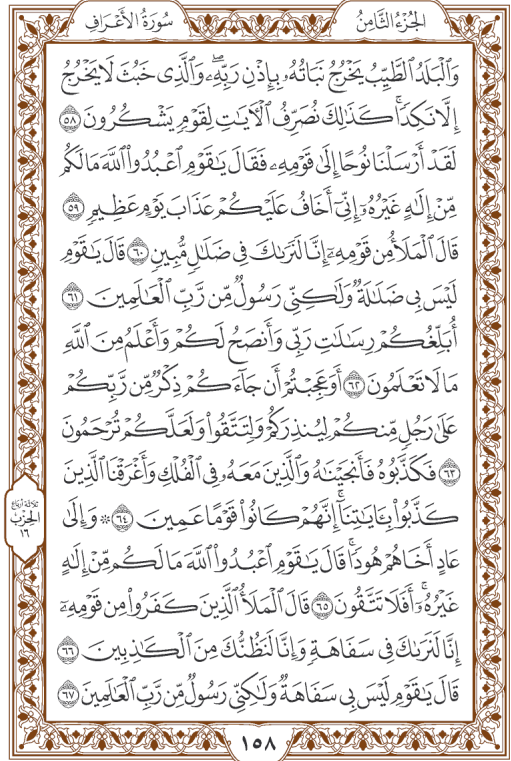 الجُزْءُ الثَّامِنُ
سُورَةُ الأَعْرَافِ
وَٱلْبَلَدُ ٱلطَّيِّبُ يَخْرُجُ نَبَاتُهُۥ بِإِذْنِ رَبِّهِۦۖ وَٱلَّذِى خَبُثَ لَا يَخْرُجُ
إِلَّا نَكِدًاۚ كَذَٰلِكَ نُصَرِّفُ ٱلْءَايَٰتِ لِقَوْمٍ يَشْكُرُونَ ٥٨
لَقَدْ أَرْسَلْنَا نُوحًا إِلَىٰ قَوْمِهِۦ فَقَالَ يَٰقَوْمِ ٱعْبُدُوا۟ ٱللَّهَ مَا لَكُم
مِّنْ إِلَٰهٍ غَيْرُهُۥٓ إِنِّىٓ أَخَافُ عَلَيْكُمْ عَذَابَ يَوْمٍ عَظِيمٍ ٥٩
قَالَ ٱلْمَلَأُ مِن قَوْمِهِۦٓ إِنَّا لَنَرَىٰكَ فِى ضَلَٰلٍ مُّبِينٍ ٦٠ قَالَ يَٰقَوْمِ
لَيْسَ بِى ضَلَٰلَةٌ وَلَٰكِنِّى رَسُولٌ مِّن رَّبِّ ٱلْعَٰلَمِينَ ٦١
أُبَلِّغُكُمْ رِسَٰلَٰتِ رَبِّى وَأَنصَحُ لَكُمْ وَأَعْلَمُ مِنَ ٱللَّهِ
مَا لَا تَعْلَمُونَ ٦٢ أَوَعَجِبْتُمْ أَن جَآءَكُمْ ذِكْرٌ مِّن رَّبِّكُمْ
عَلَىٰ رَجُلٍ مِّنكُمْ لِيُنذِرَكُمْ وَلِتَتَّقُوا۟ وَلَعَلَّكُمْ تُرْحَمُونَ
٦٣ فَكَذَّبُوهُ فَأَنجَيْنَٰهُ وَٱلَّذِينَ مَعَهُۥ فِى ٱلْفُلْكِ وَأَغْرَقْنَا ٱلَّذِينَ
كَذَّبُوا۟ بِـَٔايَٰتِنَآۚ إِنَّهُمْ كَانُوا۟ قَوْمًا عَمِينَ ٦٤ ۞ وَإِلَىٰ
عَادٍ أَخَاهُمْ هُودًاۚ قَالَ يَٰقَوْمِ ٱعْبُدُوا۟ ٱللَّهَ مَا لَكُم مِّنْ إِلَٰهٍ
غَيْرُهُۥٓۚ أَفَلَا تَتَّقُونَ ٦٥ قَالَ ٱلْمَلَأُ ٱلَّذِينَ كَفَرُوا۟ مِن قَوْمِهِۦٓ
إِنَّا لَنَرَىٰكَ فِى سَفَاهَةٍ وَإِنَّا لَنَظُنُّكَ مِنَ ٱلْكَٰذِبِينَ ٦٦
قَالَ يَٰقَوْمِ لَيْسَ بِى سَفَاهَةٌ وَلَٰكِنِّى رَسُولٌ مِّن رَّبِّ ٱلْعَٰلَمِينَ ٦٧
ثلاثة أرباع
الحزب
١٦
١٥٨